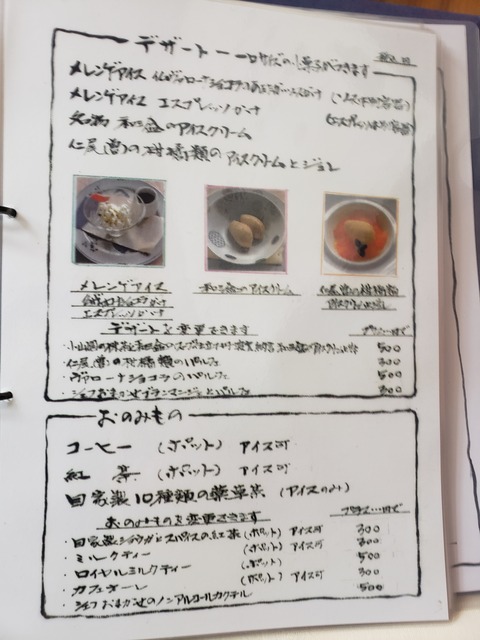 デザート 一口サイズのお菓子がつきます
メレンゲアイス
メレンゲアイス エスプレッソがけ
名物 和三盆のアイスクリーム
仁尾(曽)の柑橘類のアイスクリームとジュレ
メレンゲアイス
エスプレッソがけ
和三盆のアイスクリーム
仁尾(曽)の柑橘類
デザートを変更できます プラス…円で
500
・仁尾(曽)の柑橘類のパルフェ 300
・ヴァローナショコラのパルフェ 500
・シェフおまかせブランマンジェとパルフェ 300
おのみもの
コーヒー (ポット) アイス可
紅茶 (ポット) アイス可
自家製10種類の薬草茶 (アイスのみ)
おのみものを変更できます プラス…円で
・自家製ショウガとスパイスの紅茶 (ポット) アイス可 300
・ミルクティー (ポット) アイス可 300
・ロイヤルミルクティー (ポット) 500
・カフェオーレ (ポット) アイス可 300
・シェフおまかせのノンアルコールカクテル 500